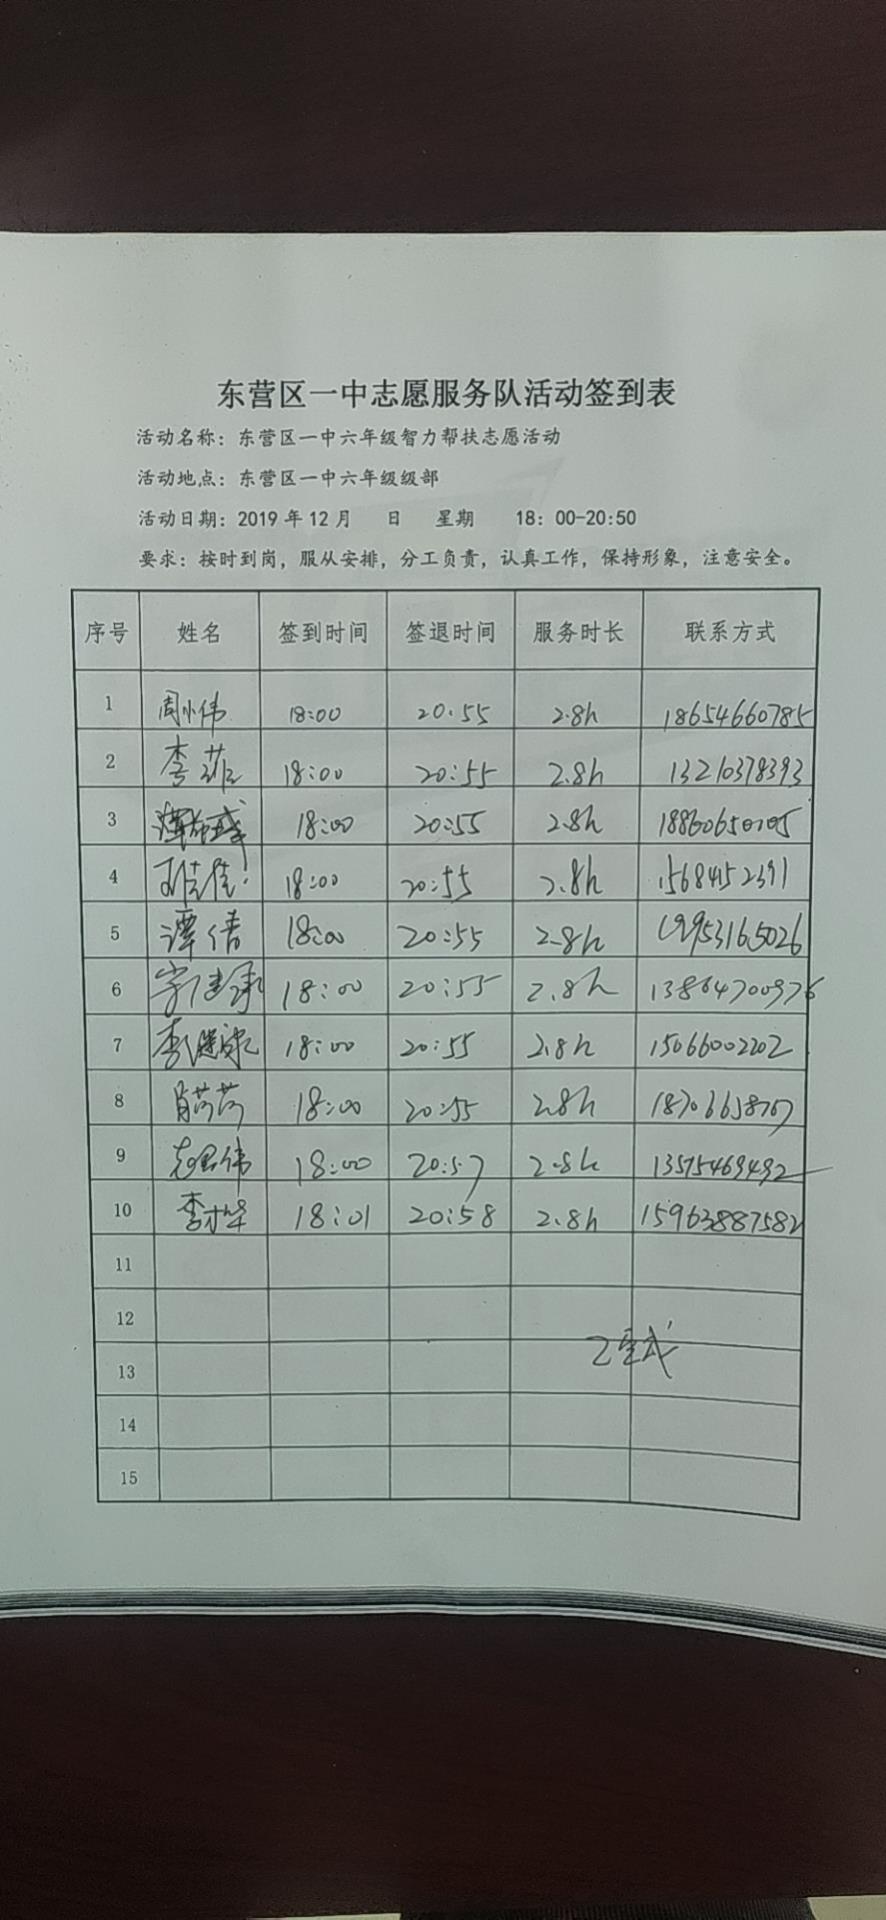 东营区一中志愿服务队活动签到表
活动名称：东营区一中六年级智力帮扶志愿活动
活动地点：东营区一中六年级级部
活动日期：2019年12月 日 星期 18：00-20:50
要求：按时到岗，服从安排，分工负责，认真工作，保持形象，注意安全。
序号 姓名 签到时间 签退时间 服务时长 联系方式
1 周小伟 18:00 20:55 2.8h 18654660785
2 李菲 18:00 20:55 2.8h 13210378393
3 18:00 20:55 2.8h
4 18:00 20:55 2.8h 15684152391
5 谭倩 18:00 20:55 2.8h 19953165026
6 18:00 20:55 2.8h
7 李继永 18:00 20:55 2.8h 15066002202
8 肖芳芳 18:00 20:55 2.8h
9 18:00 20:57 2.8h 13515469492
10 李才华 18:01 20:58 2.8h 15963887582
11
12
13
14
15